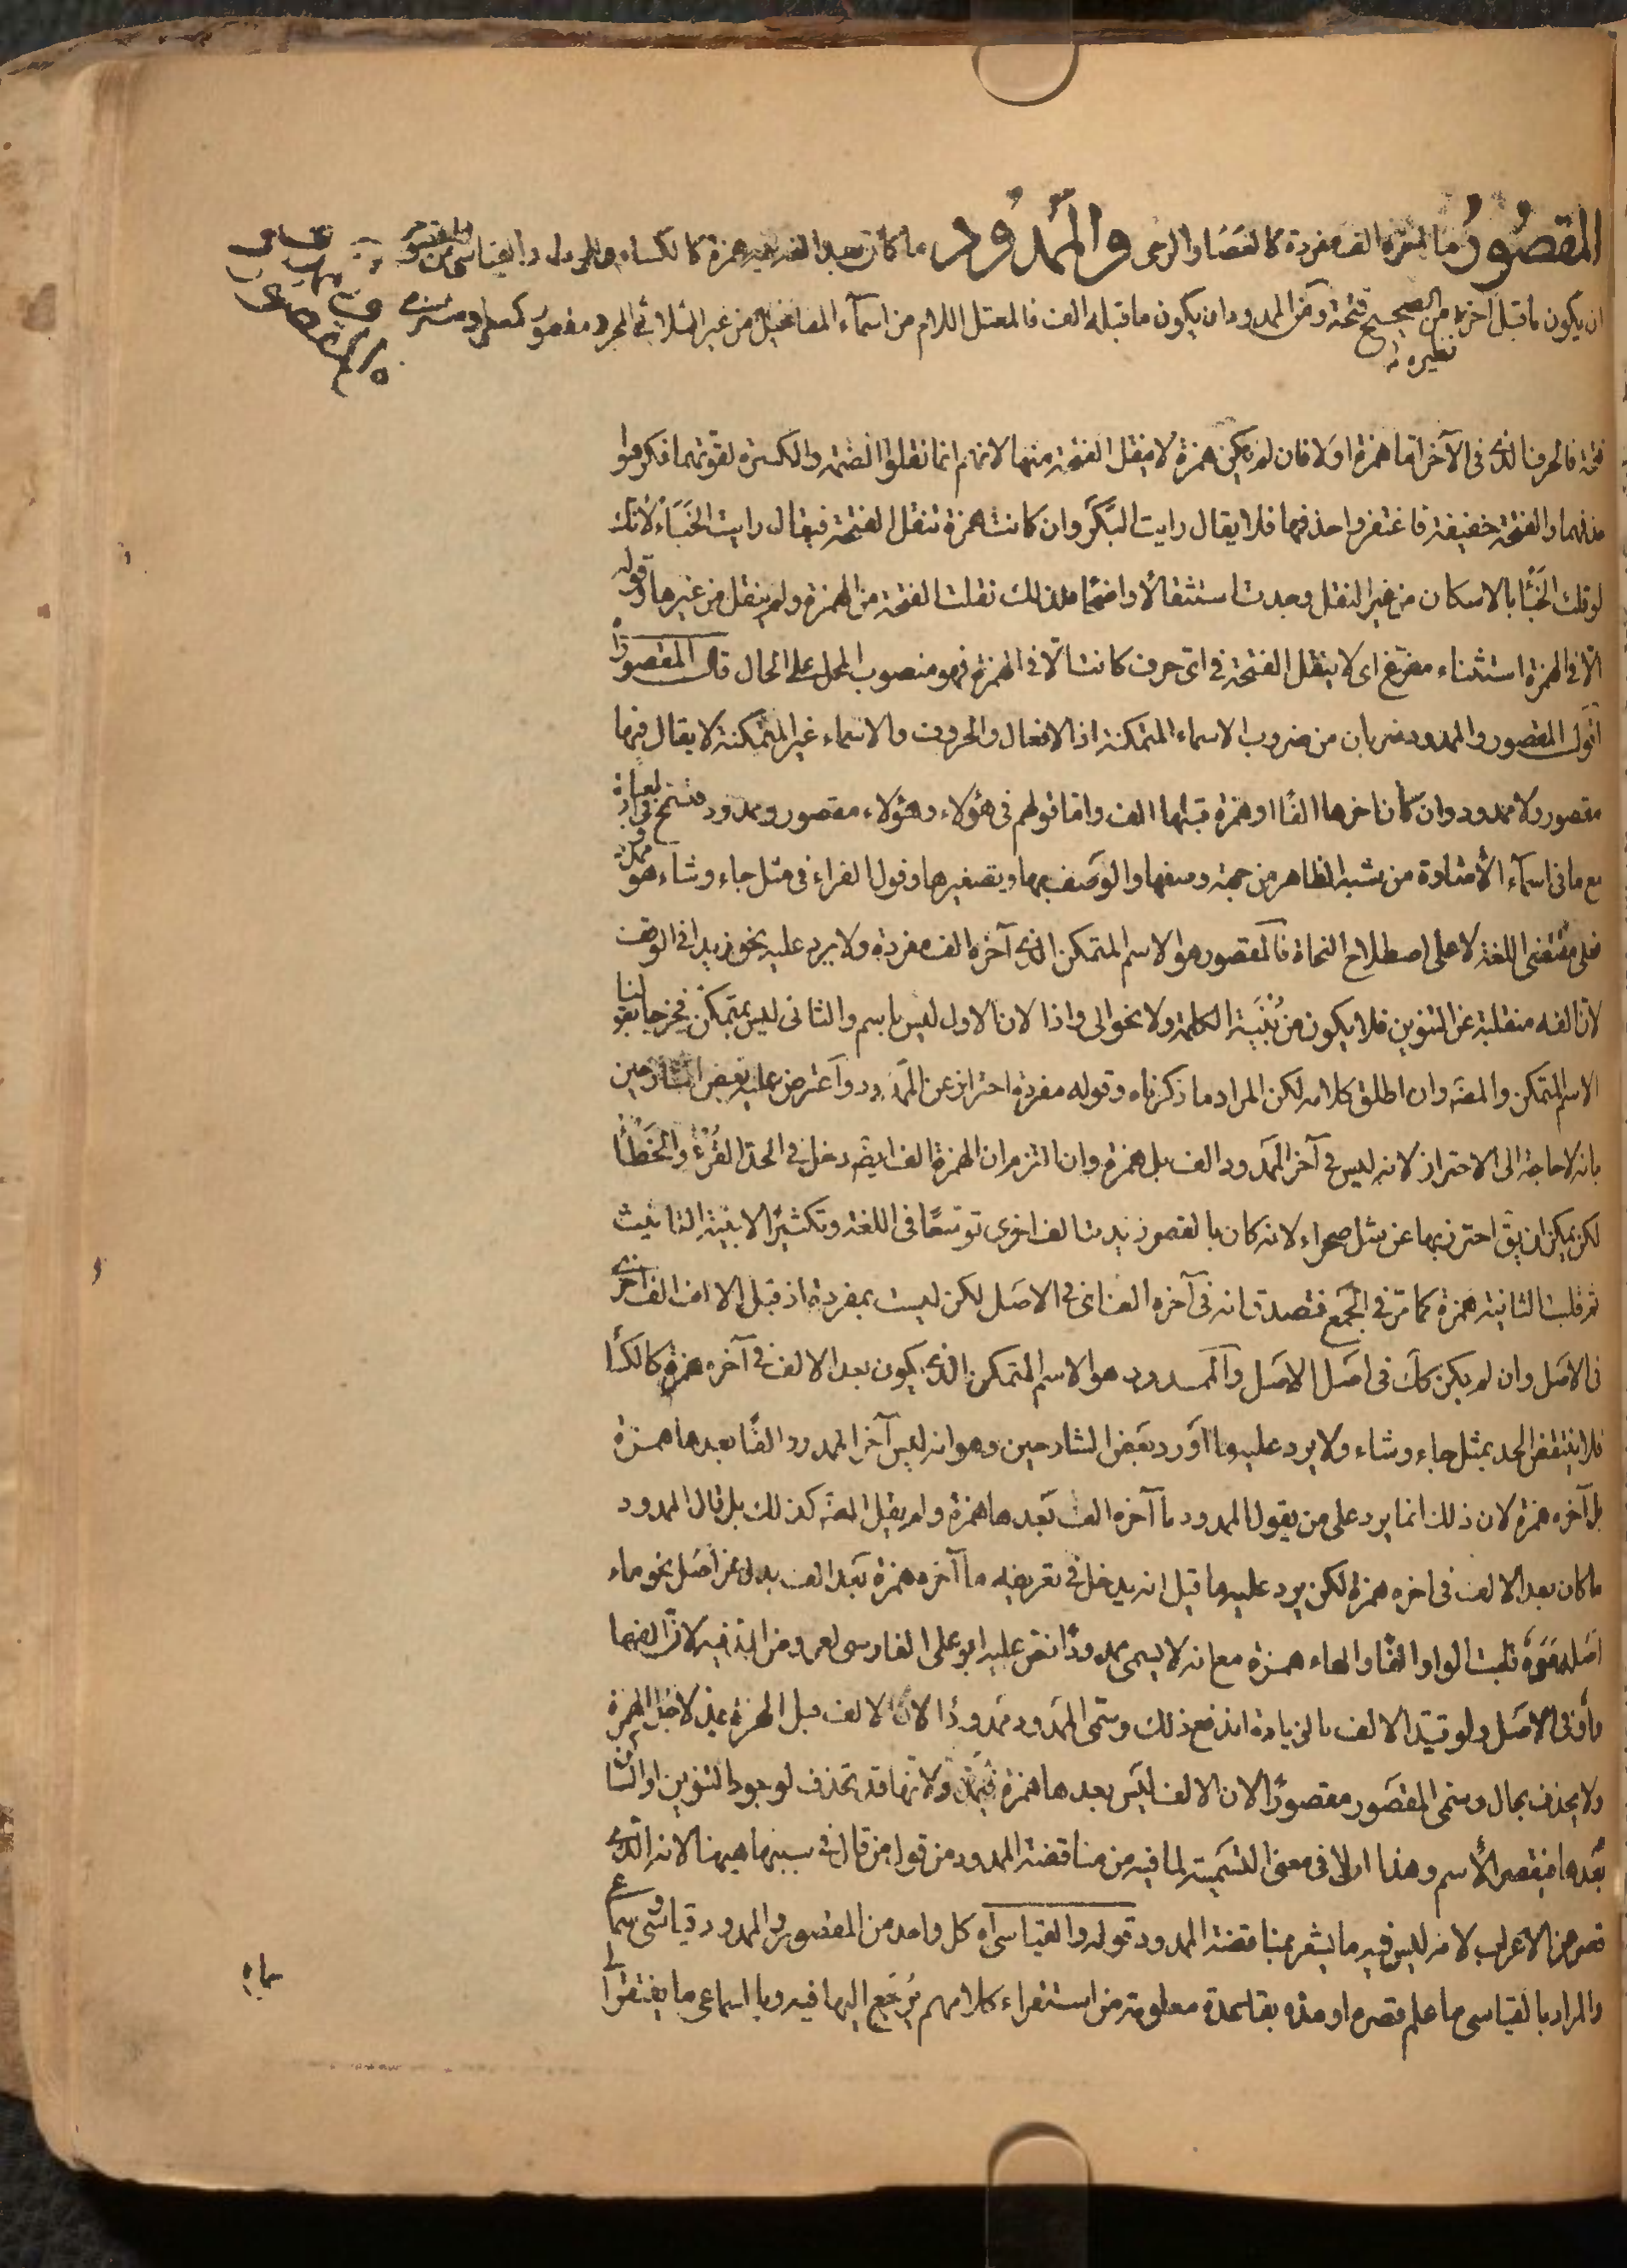 المقصور ما آخره الف مفردة كالعصا والرحى والممدود ما كان بعدها فيه همزة كالكساء والرداء والقياسى من المقصور
ان يكون ما قبل آخر نظيره من الصحيح فتحة ومن الممدود ان يكون ما قبله الف فالمعتل اللام من اسماء المفاعيل من غير الثلاثى المجرد مقصور كمعطى ومشترى
فتحة فالحرف الذى فى الآخر اما همزة او لا فان لم يكن همزة لا ينقل الفتحة منها لانهم انما نقلوا الضمة والكسرة لقوتهما فكرهوا
حذفهما والفتحة خفيفة فاغتفروا حذفها فلا يقال رايت البَكَر وان كانت همزة تنقل الفتحة فيقال رايت الخَبَاء لانك
لو قلت الخَبْأ بالاسكان من غير النقل وجدت استثقالًا واضحًا فلذلك نقلت الفتحة من الهمزة ولم ينقل من غيرها وقوله
الا فى الهمزة استثناء مفرغ اى لا ينقل الفتحة فى اى حرف كانت الا فى الهمزة فهو منصوب المحل على الحال قال المقصور اه
اقول المقصور والممدود ضربان من ضروب الاسماء المتمكنة اذ الافعال والحروف والاسماء غير المتمكنة لا يقال فيها
مقصور ولا ممدود وان كان آخرها الفًا او همزة قبلها الف واما قولهم فى هؤلاء وهؤلاء مقصور وممدود فتسمح فى العبارة
مع ما فى اسماء الاشارة من شبه الظاهر من جهة وصفها والوصف بها وتصغيرها وقول القراء فى مثل جاء وشاء هو ممدود
فعلى مقتضى اللغة لا على اصطلاح النحاة فالمقصور هو الاسم المتمكن الذى آخره الف مفردة ولا يرد عليه نحو زيدا فى الوقف
لان الفه منقلبة عن التنوين فلا يكون من بُنْيَة الكلمة ولا نحو الى واذا لان الاول ليس باسم والثانى ليس بمتمكن فخرجا بقولنا
الاسم المتمكن والمصَ وان اطلق كلامه لكن المراد ما ذكرناه وقوله مفردة احتراز عن الممدود واعترض عليه بعض الشارحين
بانه لا حاجة الى الاحتراز لانه ليس فى آخر الممدود الف بل همزة وان التزم ان الهمزة الف ايضًا دخل فى الحد القُرْء والخَطَأ
لكن يمكن ان يقَ احترز بها عن مثل صحراء لانه كان بالقصر زيدت الف اخرى توسّعًا فى اللغة وتكثيرًا لابنية التانيث
ثم قلبت الثانية همزة كما مر فى الجمع فتصدق انه فى آخره الف اى فى الاصل لكن ليست بمفردة اذ قبل الالف الف اخرى
فى الاصل وان لم يكن كَك فى اصل الاصل والممدود هو الاسم المتمكن الذى يكون بعد الالف فى آخره همزة كالكساء
فلا ينتقض الحد بمثل جاء وشاء ولا يرد عليه ما اورد بعض الشارحين وهو انه ليس آخر الممدود الفًا بعدها همزة
بل آخره همزة لان ذلك انما يرد على من يقول الممدود ما آخره الف بعدها همزة ولم يقل المصَ كذلك بل قال الممدود
ما كان بعد الالف فى آخره همزة لكن يرد عليه ما قيل انه يدخل فى تعريفه ما آخره همزة بعد الف بدل عن اصل نحو ماء
اصله مَوَهٌ قلبت الواو الفًا والهاء همزة مع انه لا يسمى ممدودًا نص عليه ابو على الفارسى
فى الاصل ولو قيّد الالف بالزيادة اندفع ذلك وسمّى الممدود ممدودًا لان الالف قبل الهمزة تمد لاجل الهمزة
ولا يحذف بحال وسمى المقصور مقصورًا لان الالف ليس بعدها همزة فيمد ولانها قد تحذف لوجود التنوين او الساكن
بعدها فيقصر الاسم وهذا اولى فى معنى التسمية لما فيه من مناقضة الممدود من قول من قال سببها ههنا لانه الذى
قصر من الاعراب لانه ليس فيه ما يشعر بمناقضة الممدود قوله والقياسى اه كل واحد من المقصور والممدود قياسى وسماعى
والمراد بالقياسى ما علم قصره او مده بقاعدة معلومة من استقراء كلامهم يُرْجَع اليها فيه وبالسماعى ما يفتقر الى
سماع